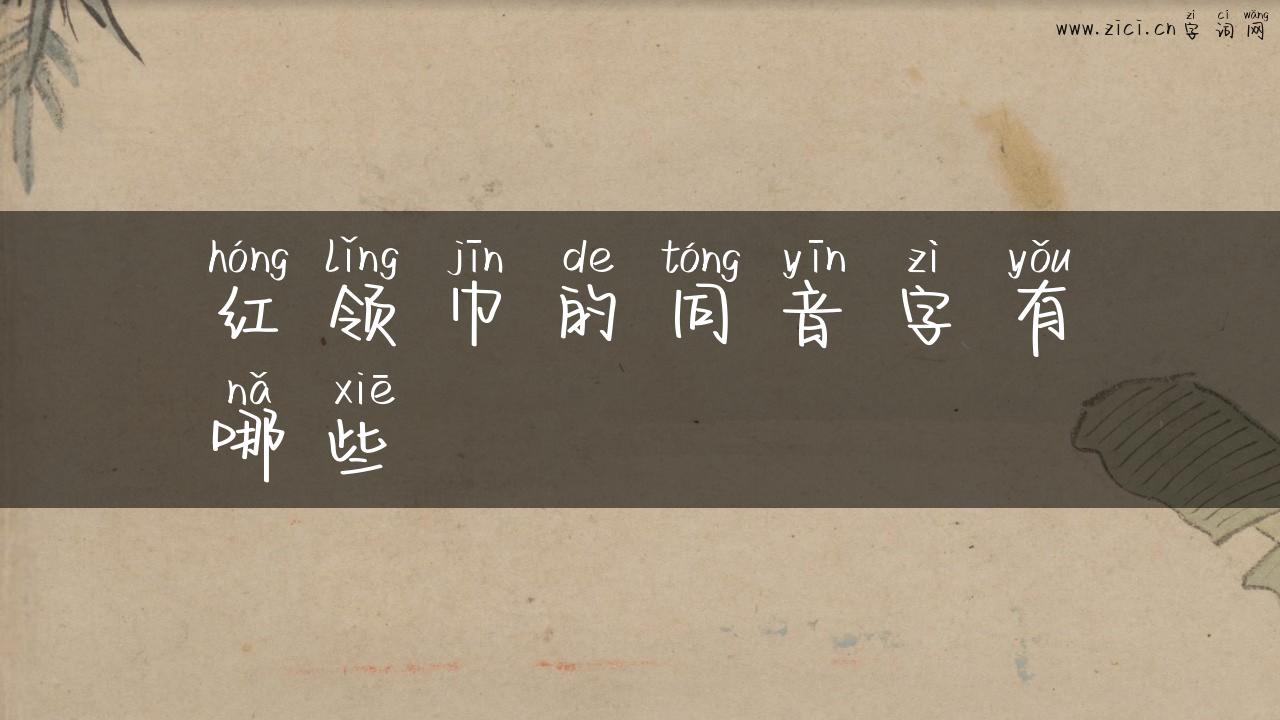 zì cí wǎng
www.zici.cn 字 词 网
hóng lǐng jīn de tóng yīn zì yǒu
红 领 巾 的 同 音 字 有
nǎ xiē
哪 些